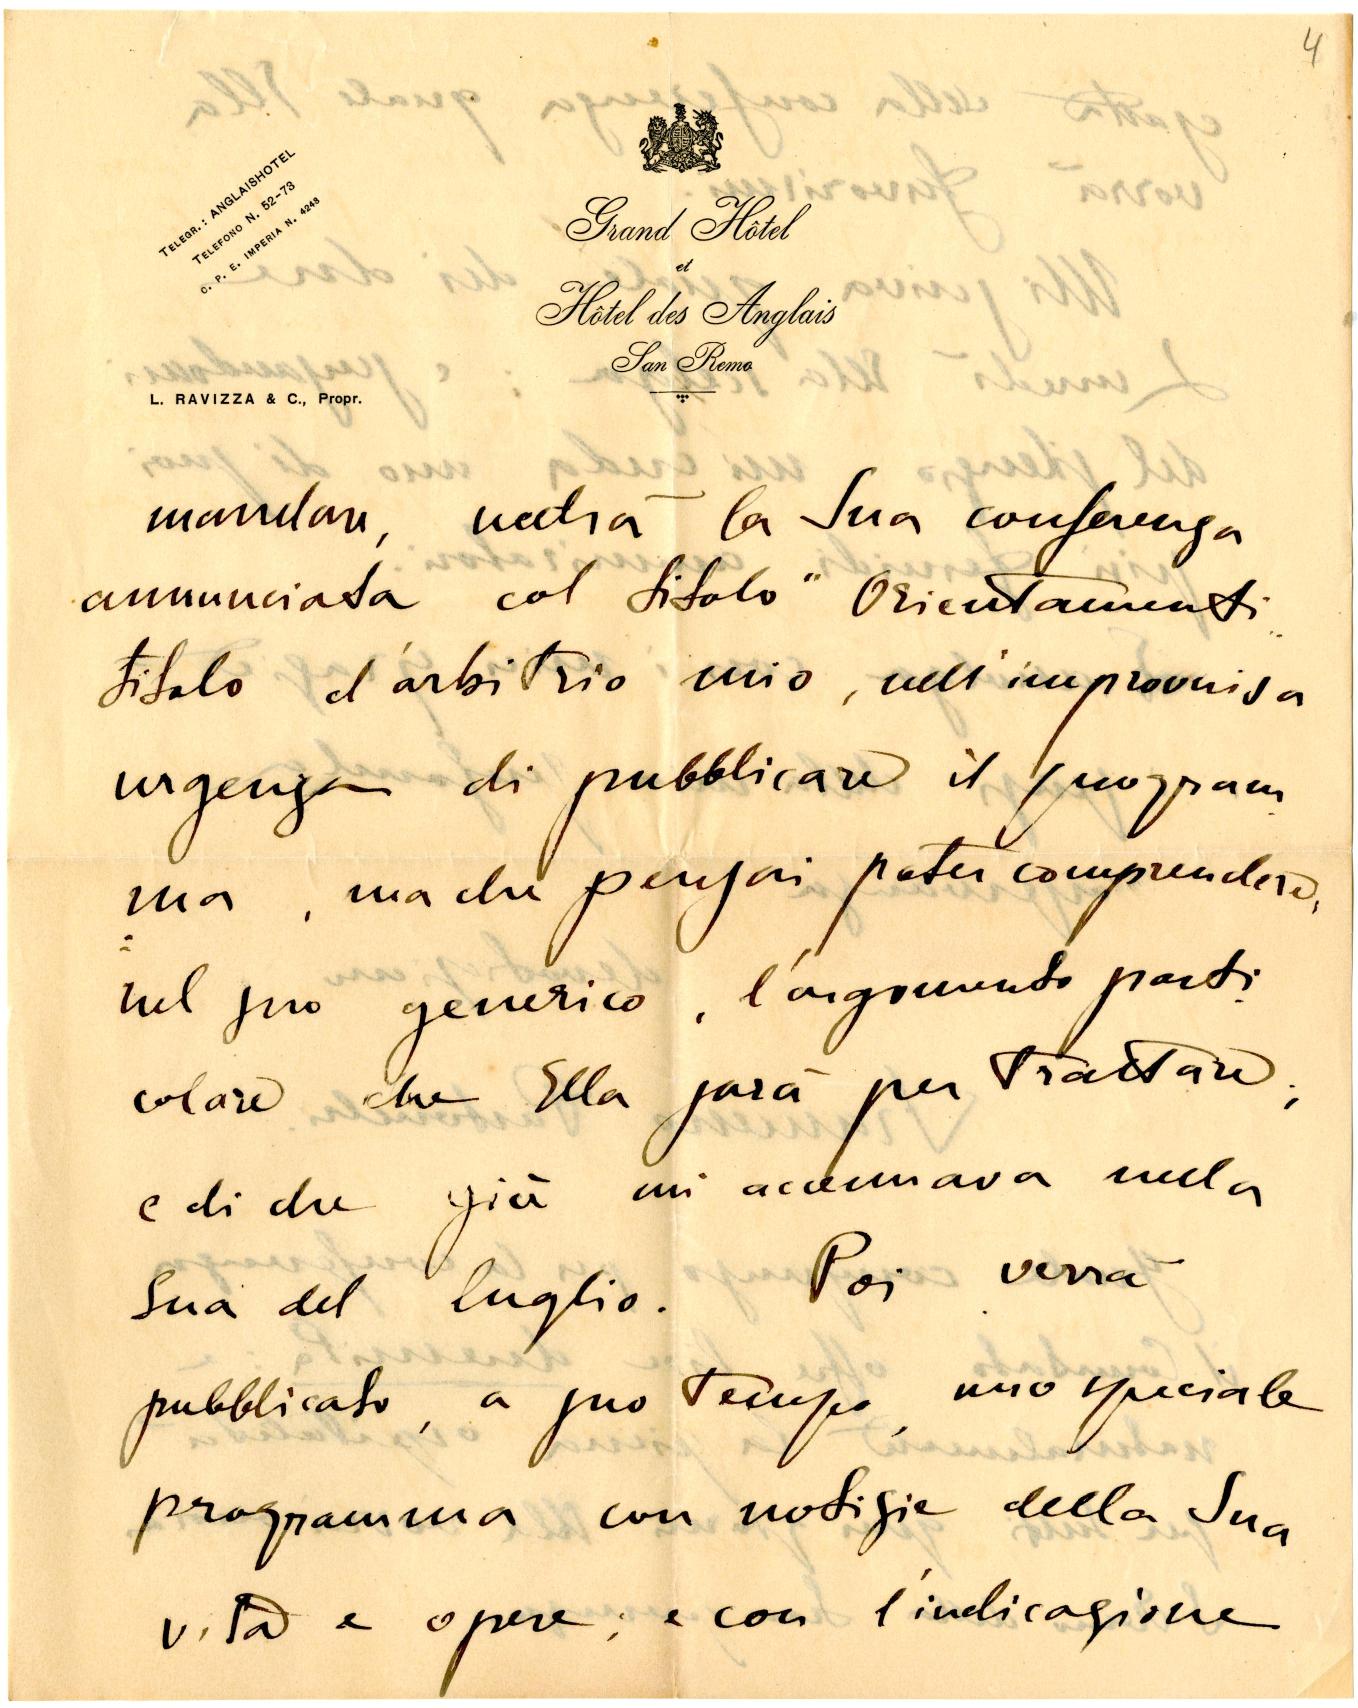 4
TELEGR.: ANGLAISHOTEL
TELEFONO N. 52-73
C. P. E. IMPERIA N. 4248
Grand Hôtel
et
Hôtel des Anglais
San Remo
L. RAVIZZA & C., Propr.
mandare, vedrà la Sua conferenza
annunciata col titolo "Orientamenti"
titolo d'arbitrio mio, nell'improvvisa
urgenza di pubblicare il program
ma, ma che pensai poter comprendere,
nel suo generico, l'argomento parti
colare che Ella sarà per trattare;
e di che già mi accennava nella
Sua del luglio. Poi verrà
pubblicato, a suo tempo, uno speciale
programma con notizie della Sua
vita e opere; e con l'indicazione